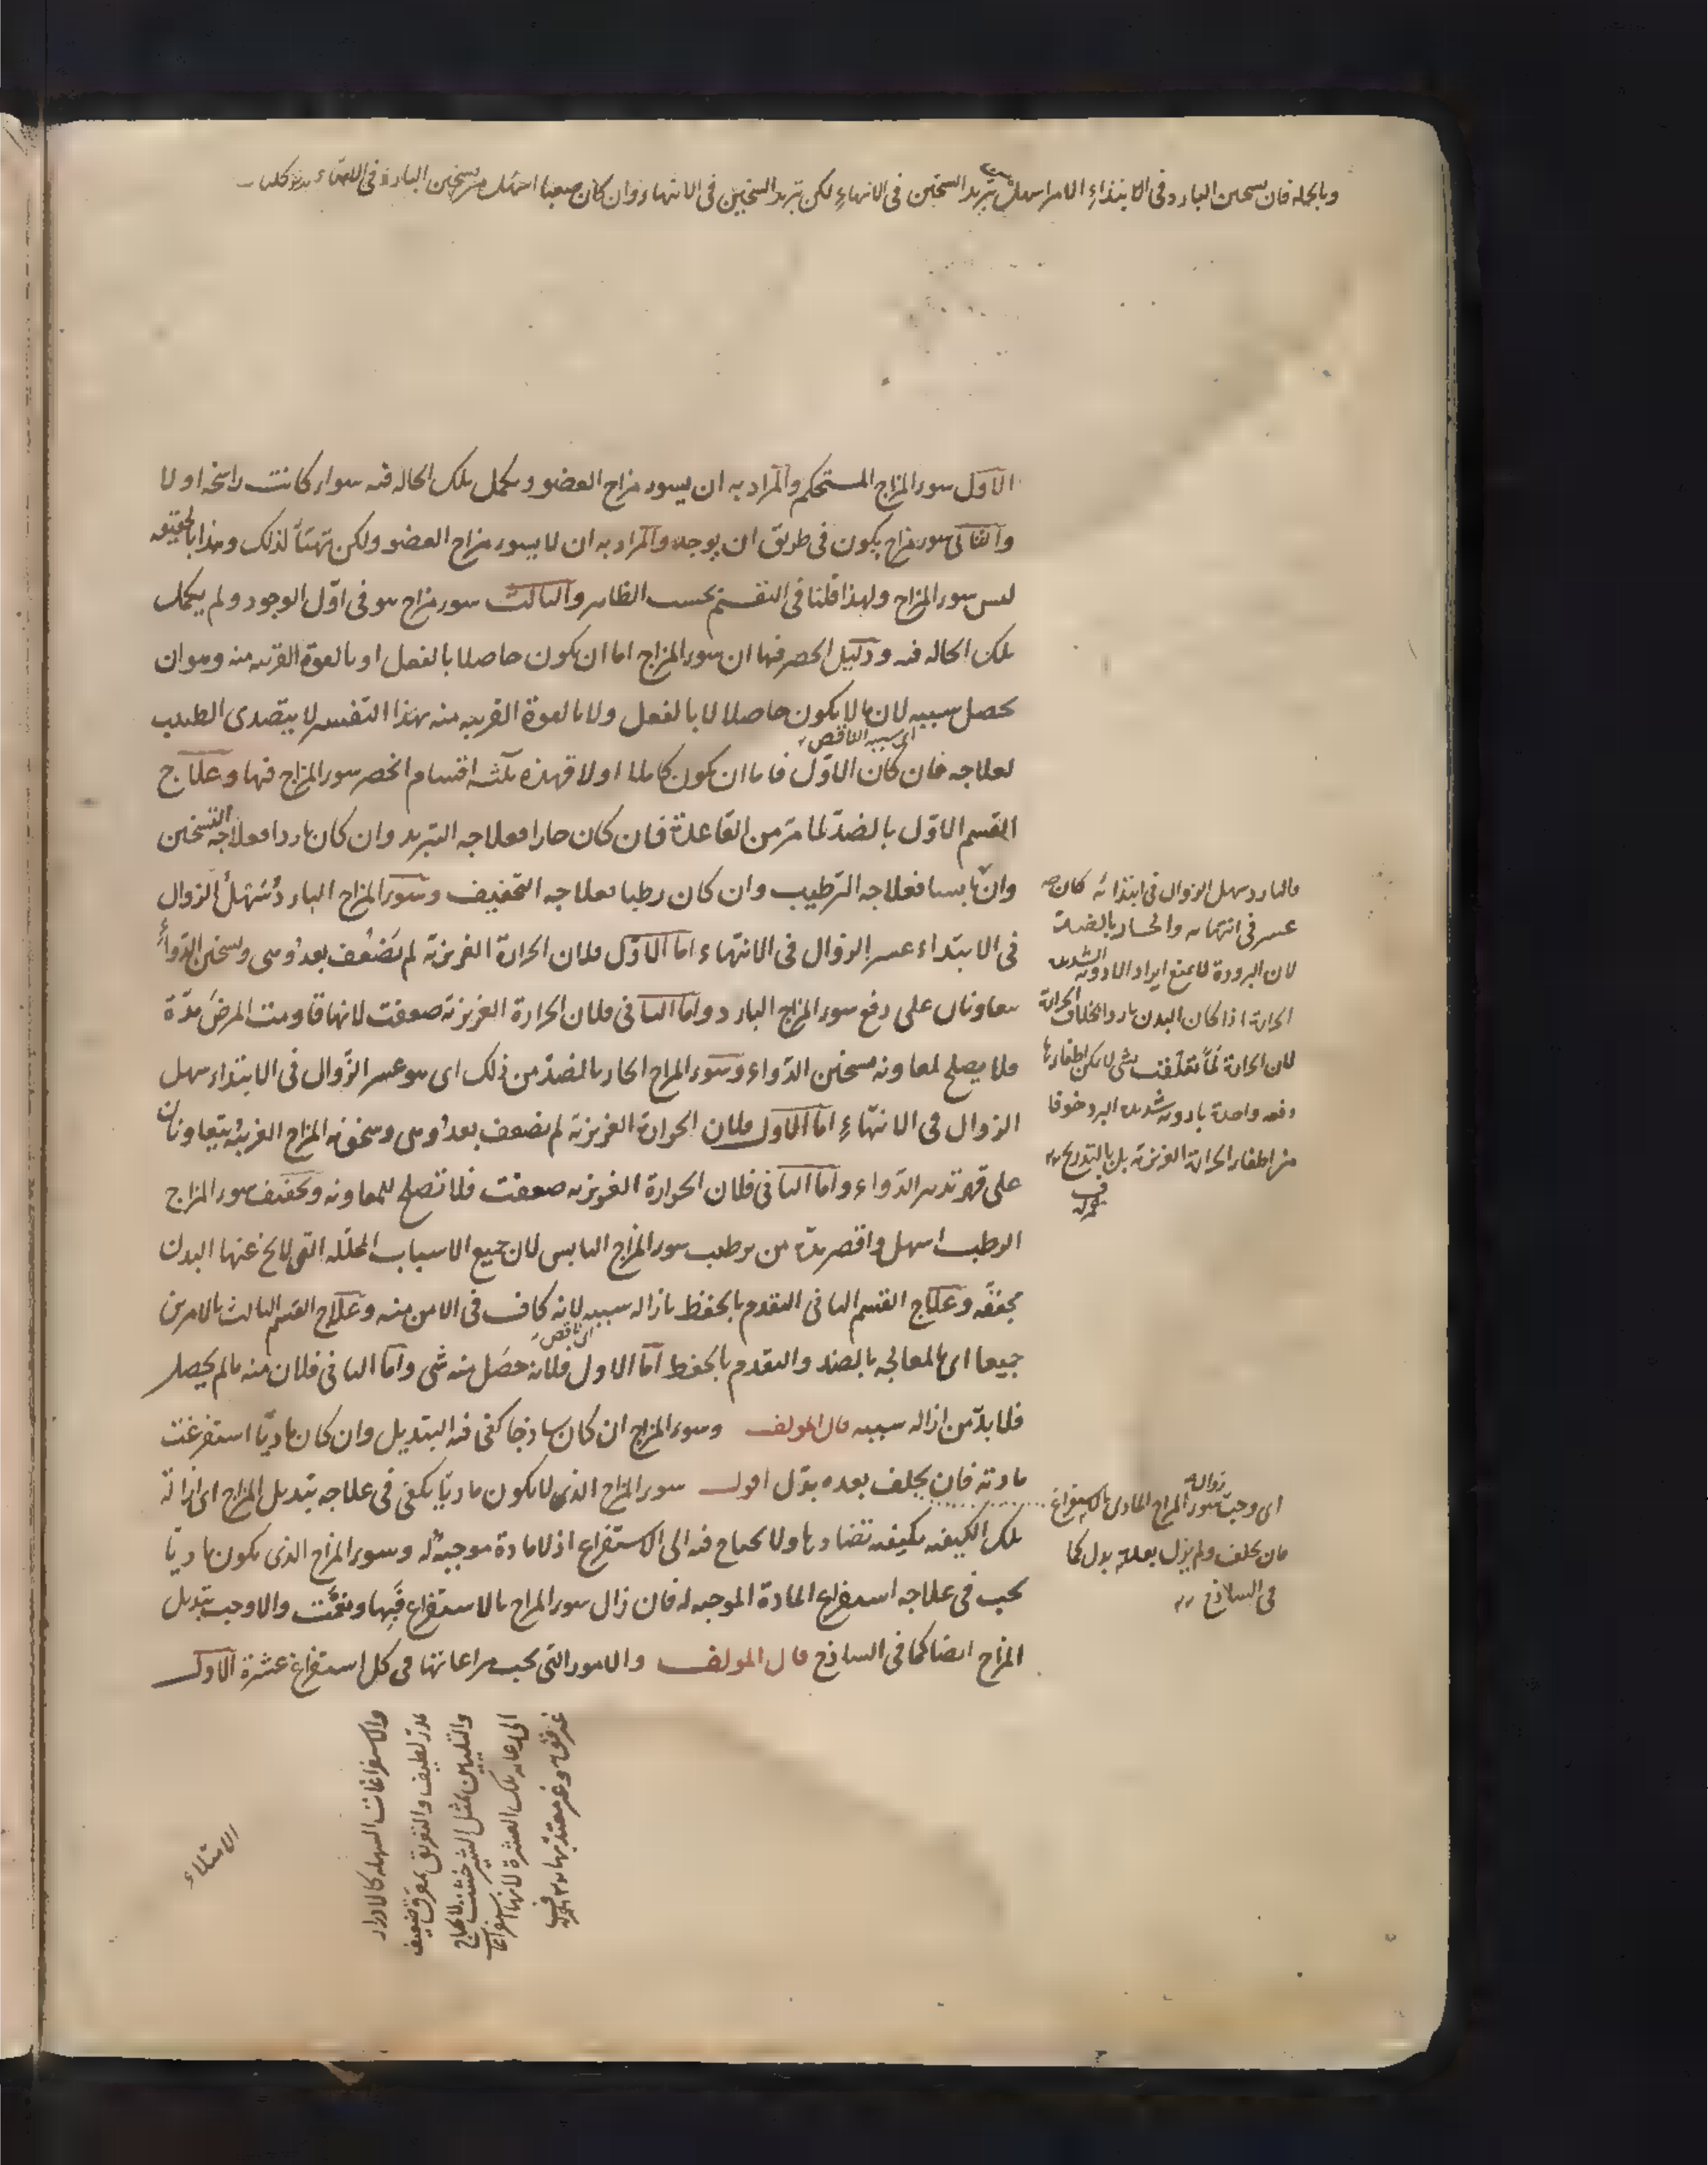 وبالجملة فان تسخين البارد فى الابتداء الامر اسهل من تبريد السخين فى الانتهاء لكن تبريد السخين فى الانتهاء وان كان صعبا اسهل من تسخين البارد فى الانتهاء
الاول سوء المزاج المستحكم والمراد به ان يسوء مزاج العضو ويكمل تلك الحاله فيه سواء كانت راسخة او لا
والثانى سوء مزاج يكون فى طريق ان يوجد والمراد به ان لا يسوء مزاج العضو ولكن تهيئا لذلك وهذا بالحقيقه
ليس سوء المزاج ولهذا قلنا فى التقسيم بحسب الظاهر والثالث سوء مزاج هو فى اول الوجود ولم يكمل
تلك الحاله فيه ودليل الحصر فيها ان سوء المزاج اما ان يكون حاصلا بالفعل او بالقوة القريبه منه وهو ان
يحصل سببه لان ما لا يكون حاصلا لا بالفعل ولا بالقوة القريبه منه بهذا التفسير لا يتصدى الطبيب
اى سببه الناقص
لعلاجه فان كان الاول فاما ان يكون كاملا او لا فهذه ثلثه اقسام انحصر سوء المزاج فيها وعلاج
القسم الاول بالضد لما مر من القاعدة فان كان حارا فعلاجه التبريد وان كان باردا فعلاجه التسخين
وان يابسا فعلاجه الترطيب وان كان رطبا فعلاجه التجفيف وسوء المزاج البارد سهل الزوال
فى الابتداء عسر الزوال فى الانتهاء اما الاول فلان الحرارة الغريزية لم تضعف بعد وهى وتسخين الدواء
يتعاونان على دفع سوء المزاج البارد واما الثانى فلان الحرارة الغريزية ضعفت لانها قاومت المرض مدة
فلا يصلح لمعاونه تسخين الدواء وسوء المزاج الحار بالضد من ذلك اى هو عسر الزوال فى الابتداء سهل
الزوال فى الانتهاء اما الاول فلان الحرارة الغريزية لم تضعف بعد وهى وسخونة المزاج الغريبه يتعاونان
على قهر تبريد الدواء واما الثانى فلان الحرارة الغريزيه ضعفت فلا تصلح للمعاونه وتجفيف سوء المزاج
الرطب اسهل واقصر مدة من ترطيب سوء المزاج اليابس لان جميع الاسباب المحلله التى لا يخ عنها البدن
مجففه وعلاج القسم الثانى التقدم بالحفظ بازاله سببه لانه كاف فى الامن منه وعلاج القسم الثالث بالامرين
اى ناقص
جميعا اى بالمعالجه بالضد والتقدم بالحفظ اما الاول فلانه حصل منه شى واما الثانى فلان منه ما لم يحصل
فلا بد من ازاله سببه قال المولف وسوء المزاج ان كان ساذجا كفى فيه التبديل وان كان ماديا استفرغت
مادته فان تخلف بعده بدل اقول سوء المزاج الذى لا يكون ماديا يكفى فى علاجه تبديل المزاج اى ازالة
تلك الكيفيه بكيفيه تضادها ولا يحتاج فيه الى الاستفراغ اذ لا مادة موجبه له وسوء المزاج الذى يكون ماديا
يجب فى علاجه استفراغ المادة الموجبه له فان زال سوء المزاج بالاستفراغ فبها ونعمت والا وجب تبديل
المزاج ايضا كما فى الساذج قال المولف والامور التى يجب مراعاتها فى كل استفراغ عشرة الاول
فالبارد سهل الزوال فى ابتدائه كان
عسر فى انتهائه والحار بالضد
لان البرودة لا تمنع ايراد الادويه الشديده
الحرارة اذا كان البدن باردا بخلاف الحرارة
لان الحرارة لما تعلقت بشى لا يمكن اطفاءها
دفعه واحدة بادويه شديده البرد خوفا
من اطفاء الحرارة الغريزية بل بالتدريج
اى وجب زواله سوء المزاج المادى بالاستفراغ
فان تخلف ولم يزل بعده بدل كما
فى الساذج
والاستفراغات السهله كالادرار
بمدر لطيف والتعريق بمعرق ضعيف
والتليين بمثل الشيرخشت لا يحتاج
الى رعاية تلك العشرة لانها استفراغات
غير قويه وغير معتد بها
الامتلاء